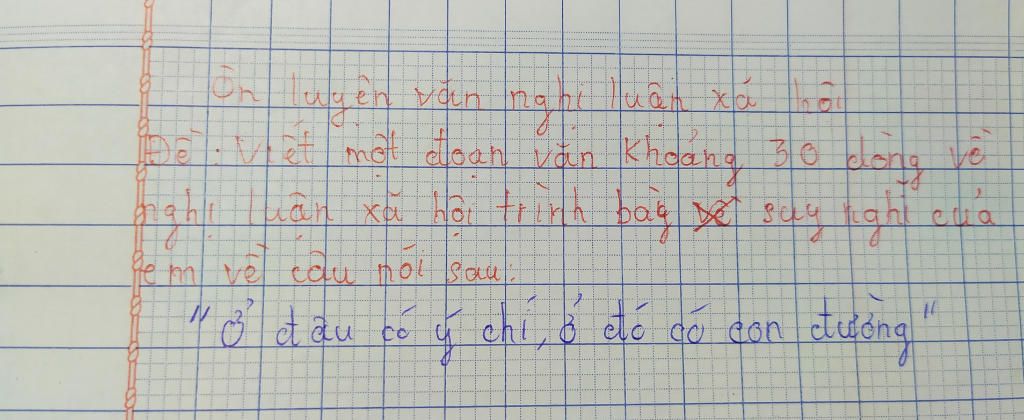 Ôn luyện văn nghị luận xã hội
Đề: Viết một đoạn văn khoảng 30 dòng về
nghị luận xã hội trình bày suy nghĩ của
em về câu nói sau:
"Ở đâu có ý chí, ở đó có con đường"